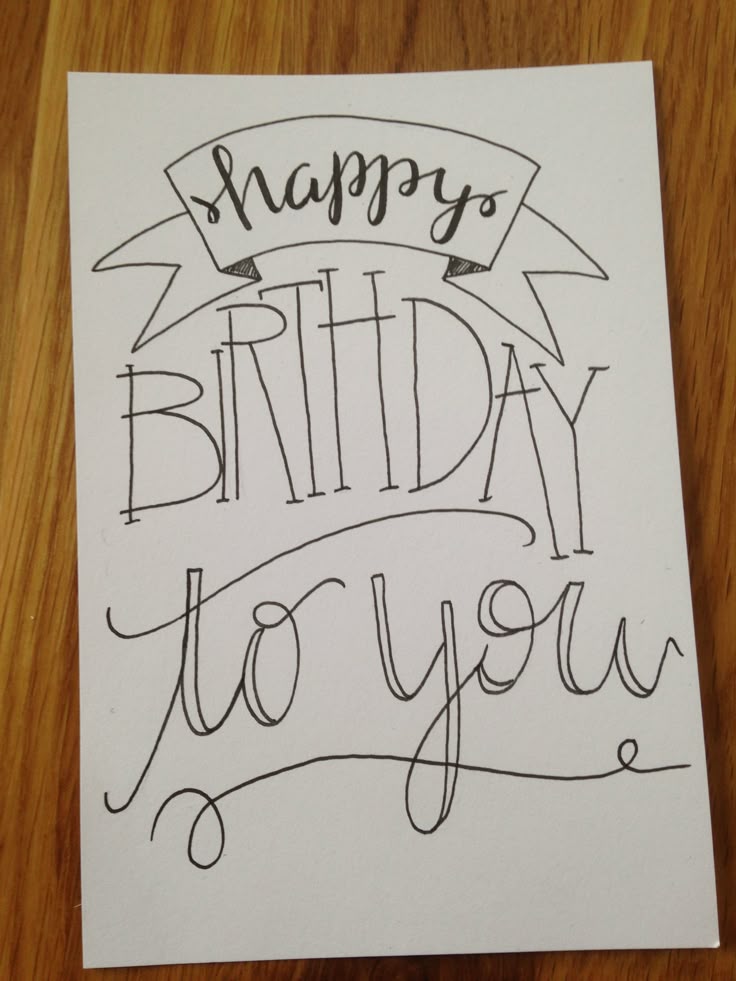 happy
BIRTHDAY
to you